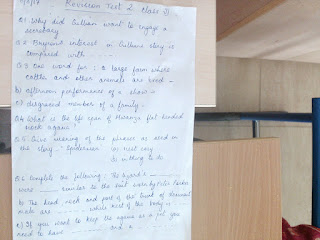 Revision Test 2 Class VI
Q.1 Why did Gillian want to engage a
secretary
Q.2 Boyarel interest in Gillians story is
compared with
Q.3 One word for: a large farm where
cattle and other animals are bred -
b) afternoon performance of a show -
c) disgraced member of a family -
Q.4 What is the life span of flat headed
rock agama?
Q.5 Give meaning of the phrase as used in
the story - Spiderman a) rest easy
b) nothing to do
Q.6 Complete the following: The lizard's
were similar to the suit worn by Peter Parker
b) The head neck and part of the torso of dominant
male are while rest of the body is
c) If you want to keep the agama as a pet you
need to have and a